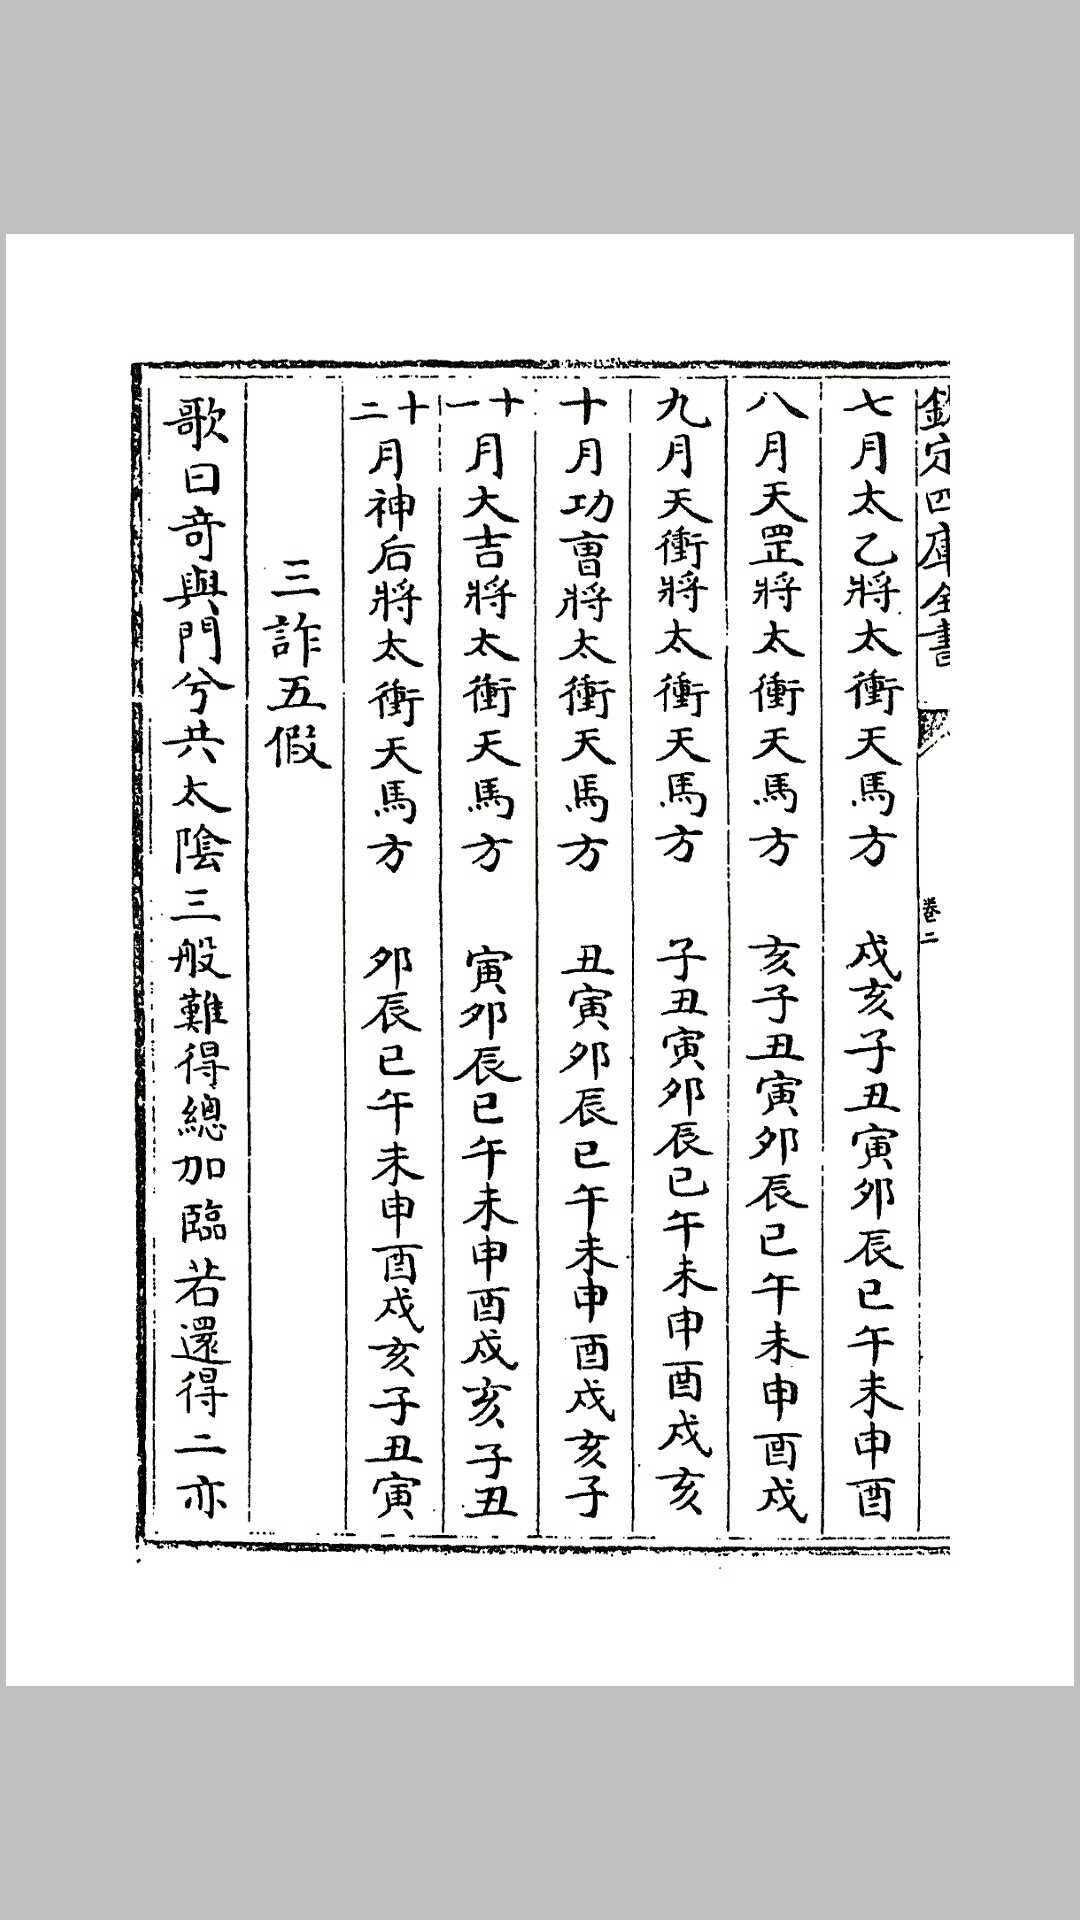 欽定四庫全書
卷二
七月太乙將太衝天馬方　戌亥子丑寅卯辰巳午未申酉
八月天罡將太衝天馬方　亥子丑寅卯辰巳午未申酉戌
九月天衝將太衝天馬方　子丑寅卯辰巳午未申酉戌亥
十月功曹將太衝天馬方　丑寅卯辰巳午未申酉戌亥子
十一月大吉將太衝天馬方　寅卯辰巳午未申酉戌亥子丑
十二月神后將太衝天馬方　卯辰巳午未申酉戌亥子丑寅
三詐五假
歌曰奇與門兮共太陰三般難得總加臨若還得二亦